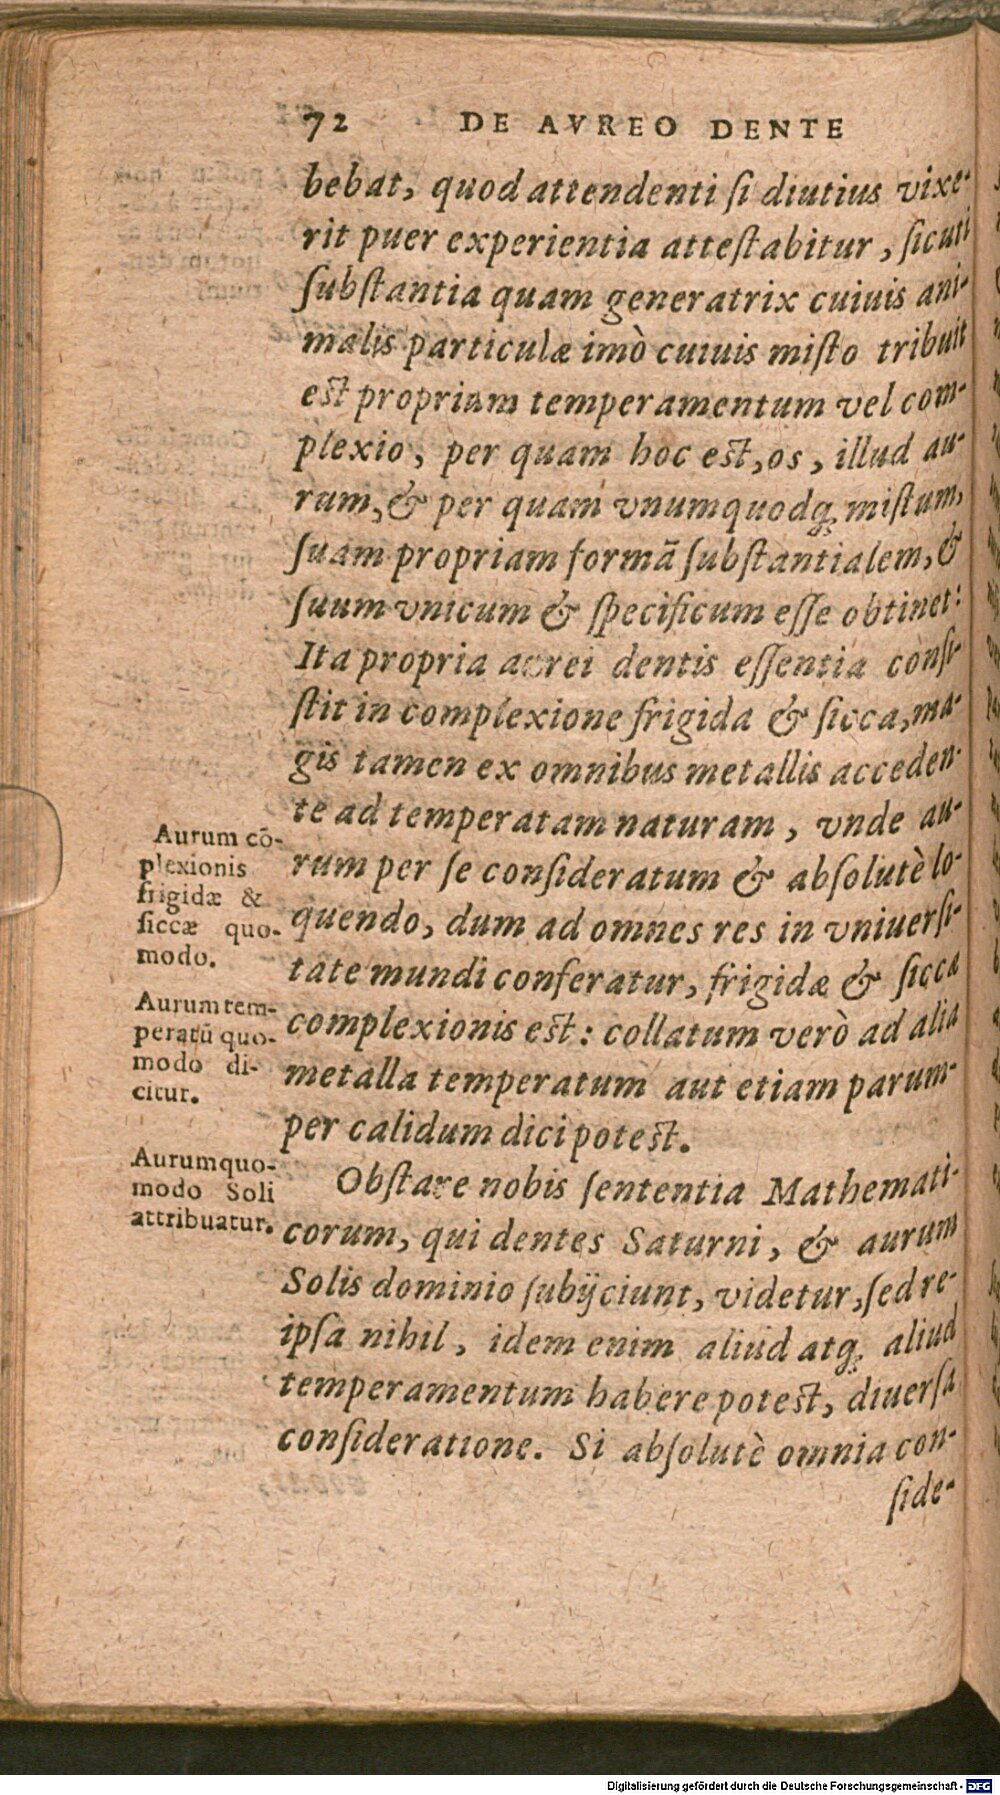 72 DE AVREO DENTE
bebat, quod attendenti ſi diutius vixe-
rit puer experientia atteſtabitur, ſicuti
ſubſtantia quam generatrix cuiuis ani-
malis particulæ imò cuiuis miſto tribuit
eſt proprium temperamentum vel com-
plexio, per quam hoc eſt, os, illud au-
rum, & per quam vnumquodq; miſtum,
ſuam propriam formã ſubſtantialem, &
ſuum vnicum & ſpecificum eſſe obtinet:
Ita propria aurei dentis eſſentia conſi-
ſtit in complexione frigida & ſicca, ma-
gis tamen ex omnibus metallis acceden-
te ad temperatam naturam, vnde au-
rum per ſe conſideratum & abſolutè lo-
quendo, dum ad omnes res in vniuerſi-
tate mundi conferatur, frigidæ & ſiccæ
complexionis eſt: collatum verò ad alia
metalla temperatum aut etiam parum-
per calidum dici poteſt.
Obſtare nobis ſententia Mathemati-
corum, qui dentes Saturni, & aurum
Solis dominio ſubijciunt, videtur, ſed re-
ipſa nihil, idem enim aliud atq; aliud
temperamentum habere poteſt, diuerſa
conſideratione. Si abſolutè omnia con-
ſide-
Aurum cõ-
plexionis
frigidæ &
ſiccæ quo-
modo.
Aurum tem-
peratũ quo-
modo di-
citur.
Aurum quo-
modo Soli
attribuatur.
Digitalisierung gefördert durch die Deutsche Forschungsgemeinschaft - DFG